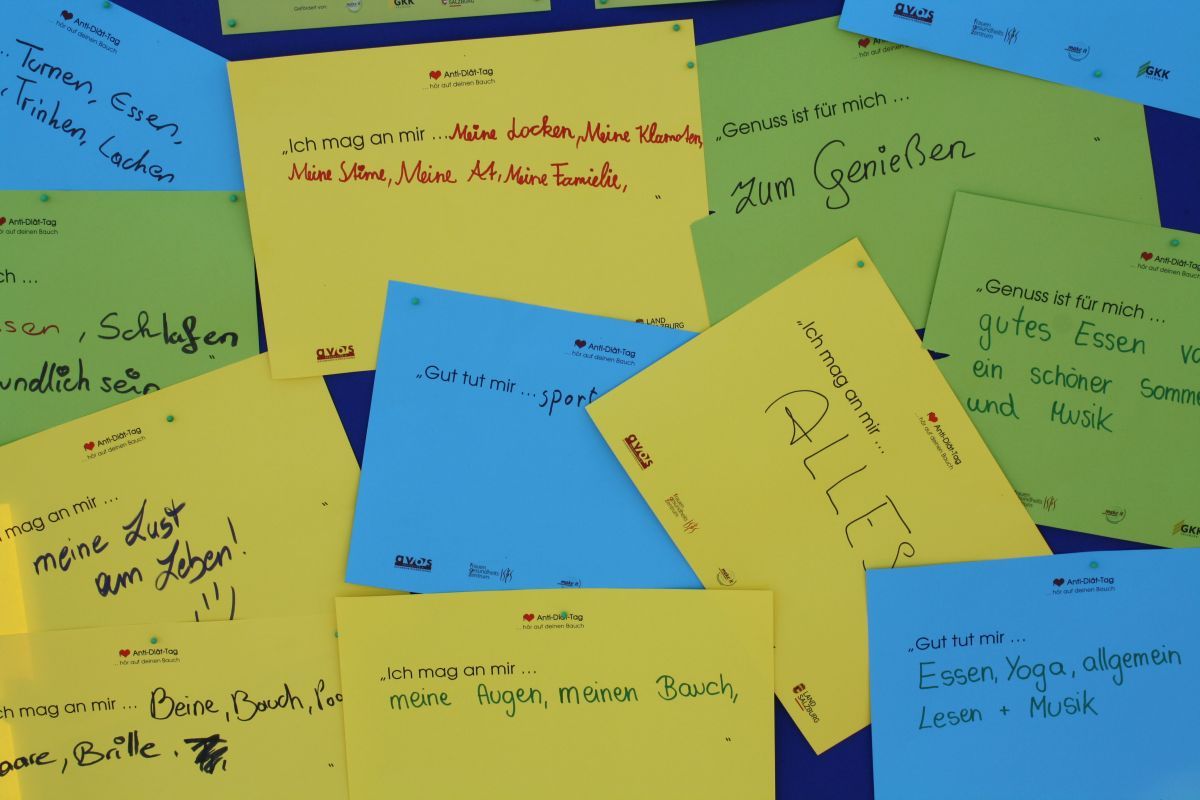 Gefördert von:
GKK
SALZBURG
Anti-Diät-Tag
... Turnen, Essen,
Trinken, Lachen
Anti-Diät-Tag
... hör auf deinen Bauch
„Ich mag an mir ... Meine Locken, Meine Klamoten,
Meine Stime, Meine At, Meine Familie,
"
avos
LAND
SALZBURG
Anti-Diät-Tag
„Genuss ist für mich ...
zum Genießen
"
avos
frauen
gesundheits
zentrum
ISIS
make it
GKK
Anti-Diät-Tag
hör auf deinen Bauch
ch ...
ssen, Schlafen
undlich sein
"
Anti-Diät-Tag
... hör auf deinen Bauch
„Gut tut mir ... sport
avos
frauen
gesundheits
zentrum
ISIS
make it
„Ich mag an mir ...
ALLES
Anti-Diät-Tag
... hör auf deinen Bauch
avos
frauen
gesundheits
zentrum
ISIS
LAND
SALZBURG
Anti-Diät-Tag
... hör auf deinen Bauch
„Genuss ist für mich ...
gutes Essen
ein schöner Somme
und Musik
gesundheits
zentrum
ISIS
GKK
Anti-Diät-Tag
... hör auf deinen Bauch
mag an mir ...
meine Lust
am Leben!
"
Anti-Diät-Tag
... hör auf deinen Bauch
ch mag an mir ... Beine, Bauch, Po
aare, Brille.
"
Anti-Diät-Tag
... hör auf deinen Bauch
„Ich mag an mir ...
meine Augen, meinen Bauch,
"
Anti-Diät-Tag
... hör auf deinen Bauch
„Gut tut mir ...
Essen, Yoga, allgemein
Lesen + Musik